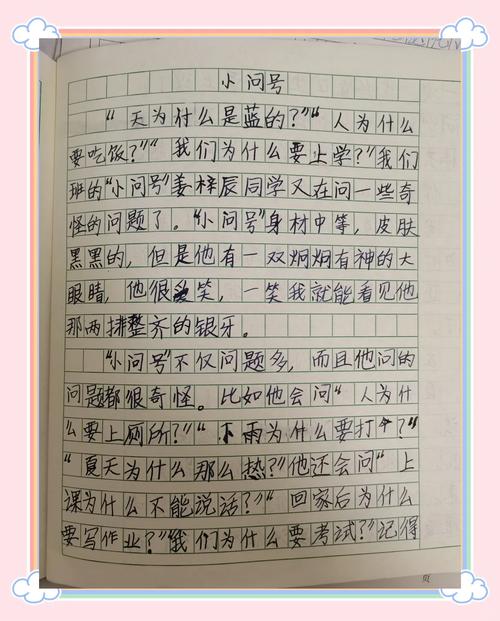 小问号
“天为什么是蓝的?”“人为什么
要吃饭?”“我们为什么要上学?”我们
班的“小问号”姜梓辰同学又在问一些奇
怪的问题了。“小问号”身材中等，皮肤
黑黑的，但是他有一双炯炯有神的大
眼睛，他很爱笑，一笑我就能看见他
那两排整齐的银牙。
“小问号”不仅问题多，而且他问的
问题都很奇怪。比如他会问“人为什
么要上厕所?”“下雨为什么要打伞?”
“夏天为什么那么热?”他还会问“上
课为什么不能说话?”“回家后为什么
要写作业?”“我们为什么要考试?”记得
页